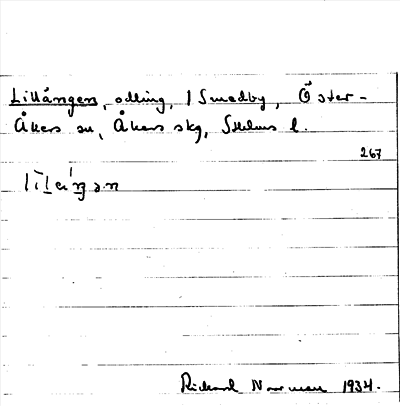 Lillängen, odling, i Smedby, Öster-
Åkers sn, Åkers skg, Sthlms l.
267
Richard Norrman 1934.